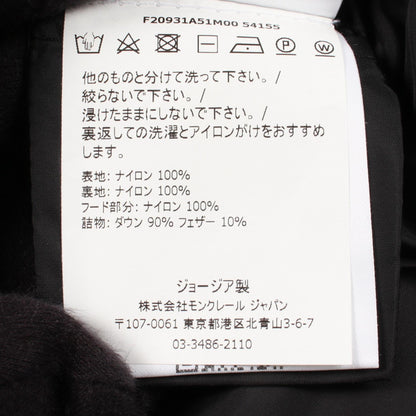 F20931A51M00 5415S
他のものと分けて洗って下さい。/
絞らないで下さい。/
浸けたままにしないで下さい。/
裏返しての洗濯とアイロンがけをおすすめ
します。
表地: ナイロン 100%
裏地: ナイロン 100%
フード部分: ナイロン 100%
詰物: ダウン 90% フェザー 10%
ジョージア製
株式会社モンクレール ジャパン
〒107-0061 東京都港区北青山3-6-7
03-3486-2110